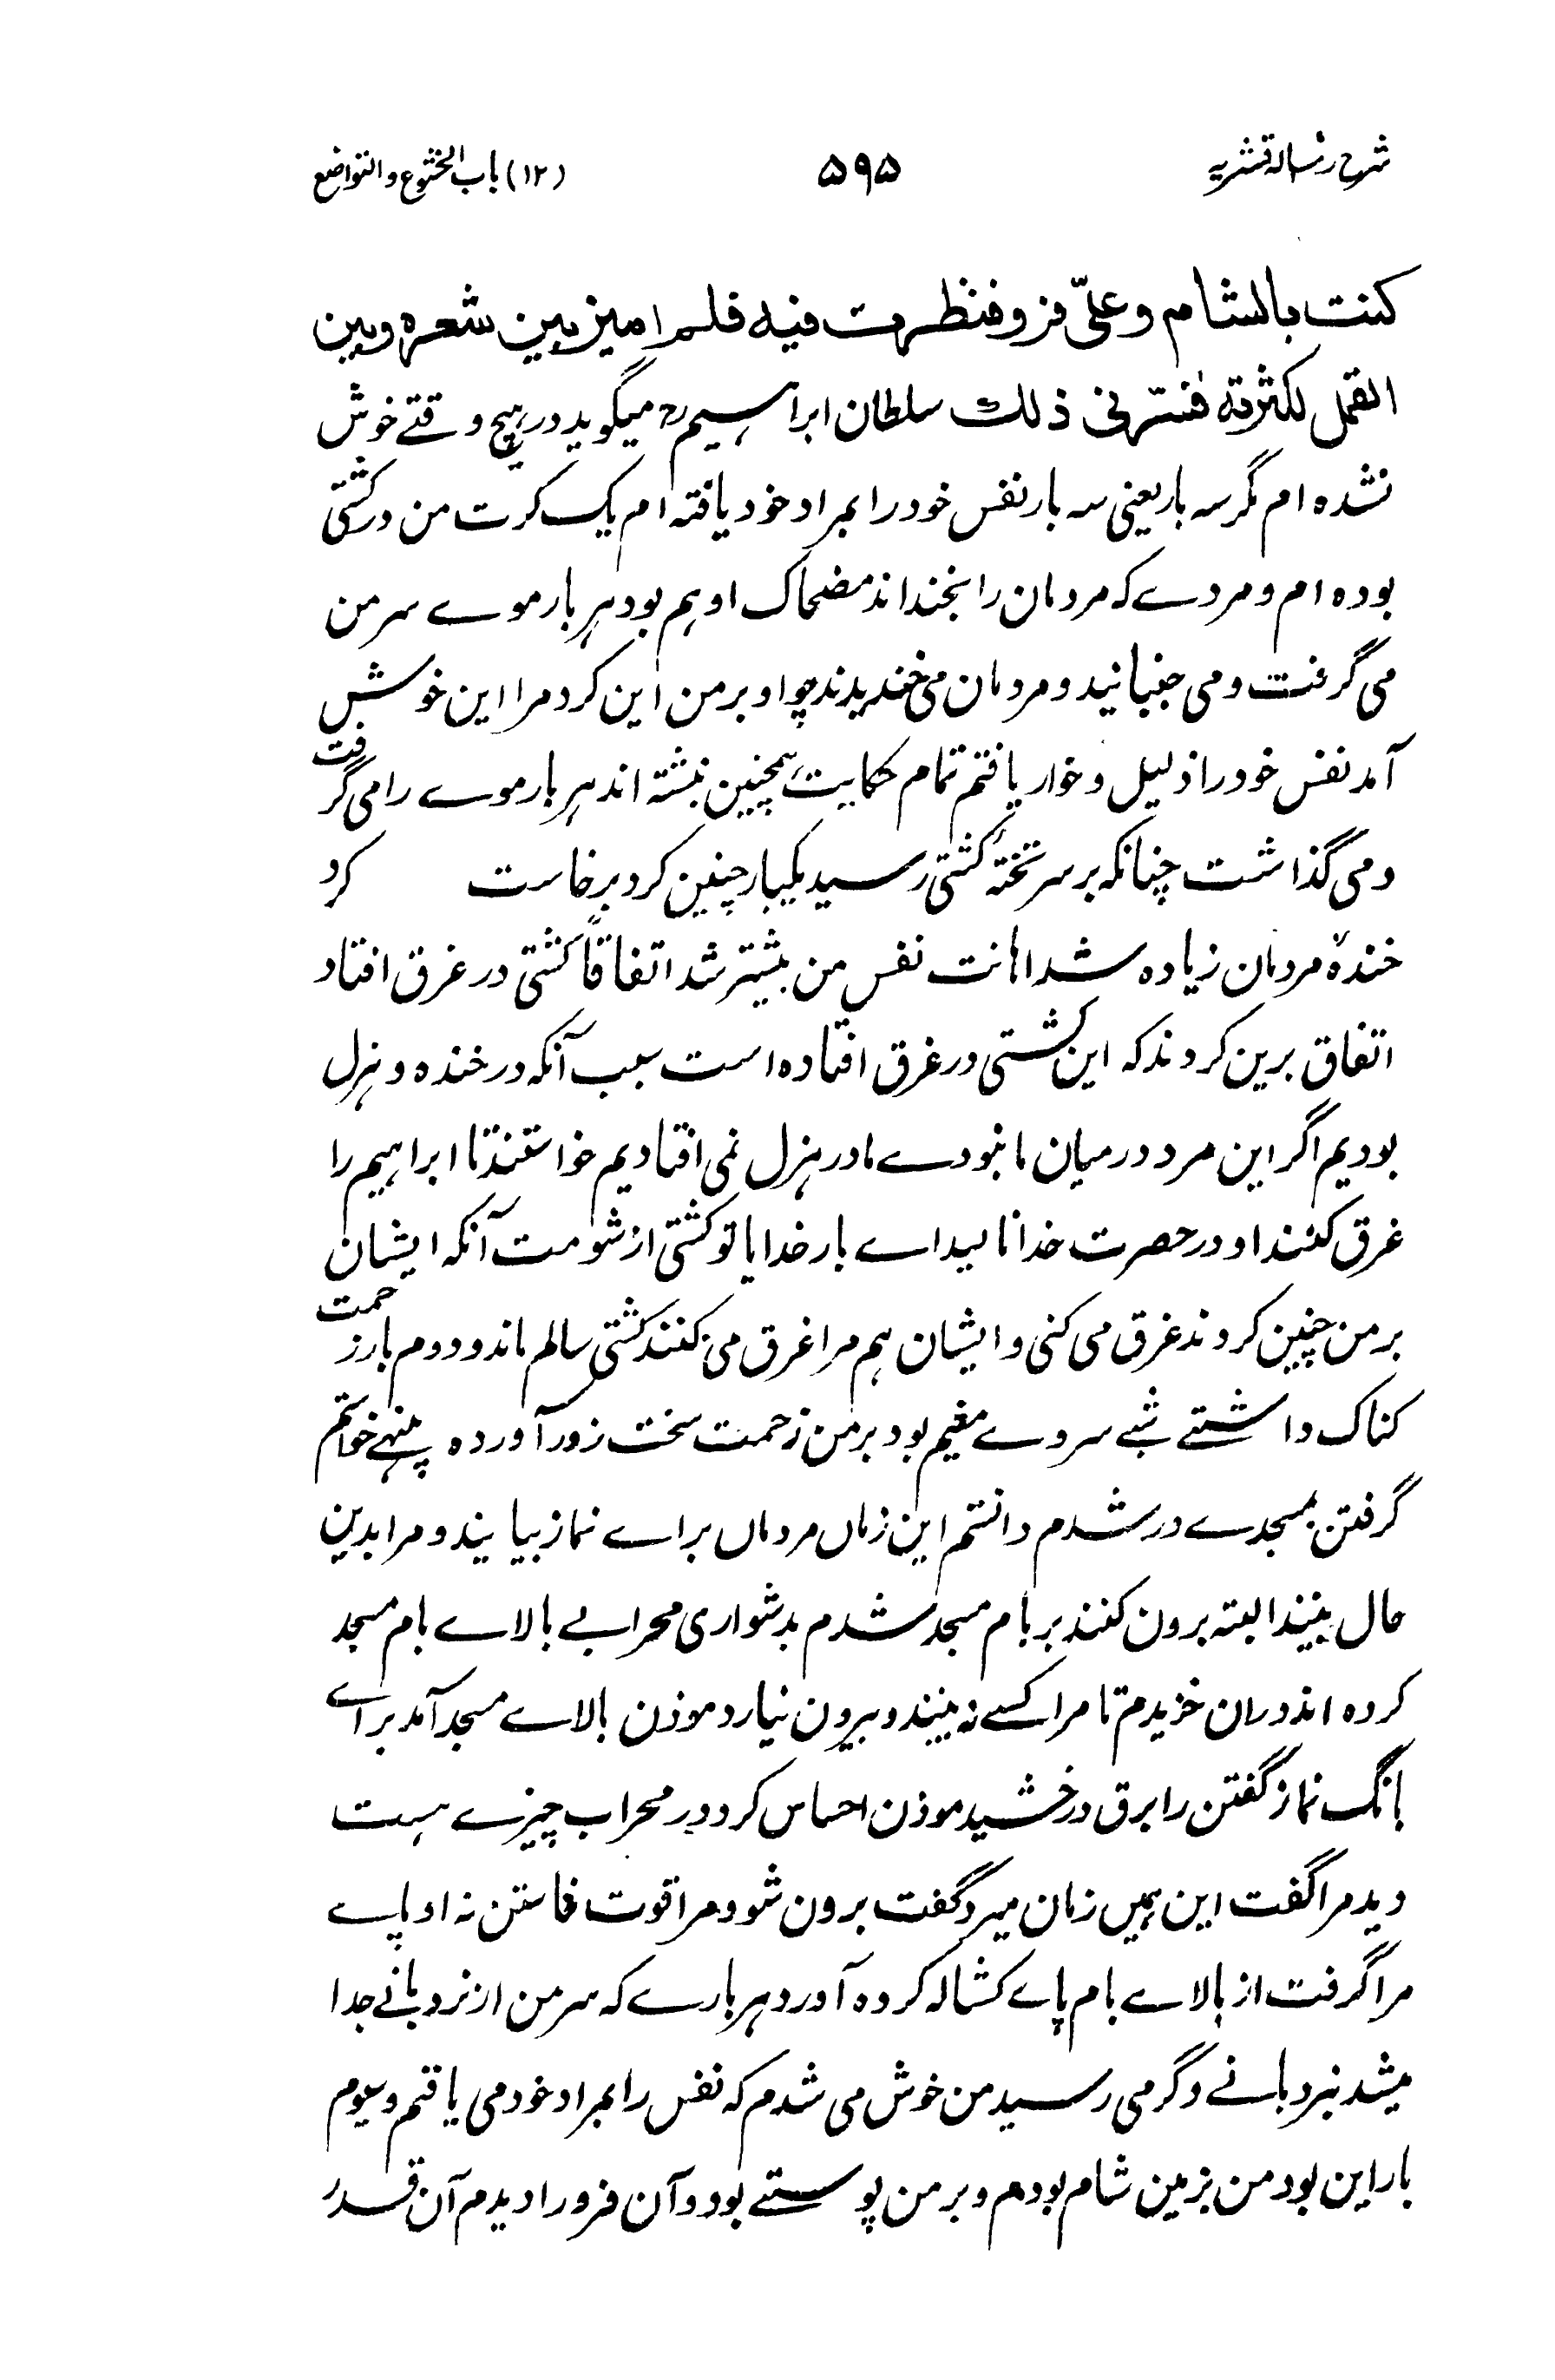 شرح رسالہ قشیریہ ۵۹۵ (۱۲) باب الخشوع والتواضع
كنت بالشام وعلىّ فرو فنظرت فيه فلم اميز بين شعره وبين
القمل لكثرته فسرنى ذلك سلطان ابراہیمؒ میگوید در ہیچ وقتے خوش
نشدہ ام مگر سہ بار یعنی سہ بار نفس خود را بمراد خود یافتہ ام یک کرت من در کشتی
بودہ ام و مردے کہ مردمان را بخنداند مضحاک او ہم بود ہر بار موے سر من
می گرفت و می جنبانید و مردمان می خندیدند چو او بر من این کرد مرا این خوش
آمد نفس خود را ذلیل و خوار یافتم تمام حکایت ہمچنین نبشتہ اند ہر بار موے را می گرفت
و می گذاشت چنانکہ بر سر تختۂ کشتی رسید یکبار چنین کرد برخاست کرد
خندۂ مردمان زیادہ شد اہانت نفس من بیشتر شد اتفاقاً کشتی در غرق افتاد
اتفاق برین کردند کہ این کشتی در غرق افتادہ است سبب آنکہ در خندہ و ہزل
بودیم اگر این مرد درمیان ما نبودے ما در ہزل نمی افتادیم خواستند تا ابراہیم را
غرق کنند او در حضرت خدا نالید اے بار خدایا تو کشتی از شومت آنکہ ایشان
بر من چنین کردند غرق می کنی و ایشان ہم مرا غرق می کنند کشتی سالم ماند و دوم بار زحمت
کناک داشتے شبے سردے مغیم بود بر من زحمت سخت زور آوردہ پنہے خواستم
گرفتن بمسجدے در شدم دانستم این زماں مردماں براے نماز بیایند و مرا بدین
حال بینند البتہ برون کنند بر بام مسجد شدم بدشواری محرابے بالاے بام مسجد
کردہ اند دران خزیدم تا مرا کسے نہ بیند و بیرون نیارد موذن بالاے مسجد آمد براے
بانگ نماز گفتن را برق درخشید موذن احساس کرد در محراب چیزے ہست
دید مرا گفت این ہمیں زمان میرد گفت برون شو و مرا قوت خاستن نہ او پاے
مرا گرفت از بالاے بام پاے کشالہ کردہ آورد ہر بارے کہ سر من از نردبانے جدا
میشد بنردبانے دگر می رسید من خوش می شدم کہ نفس را بمراد خود می یافتم و سیوم
بار این بود من بزمین شام بودم و بر من پوستے بود و آن فرو را دیدم آن قدر